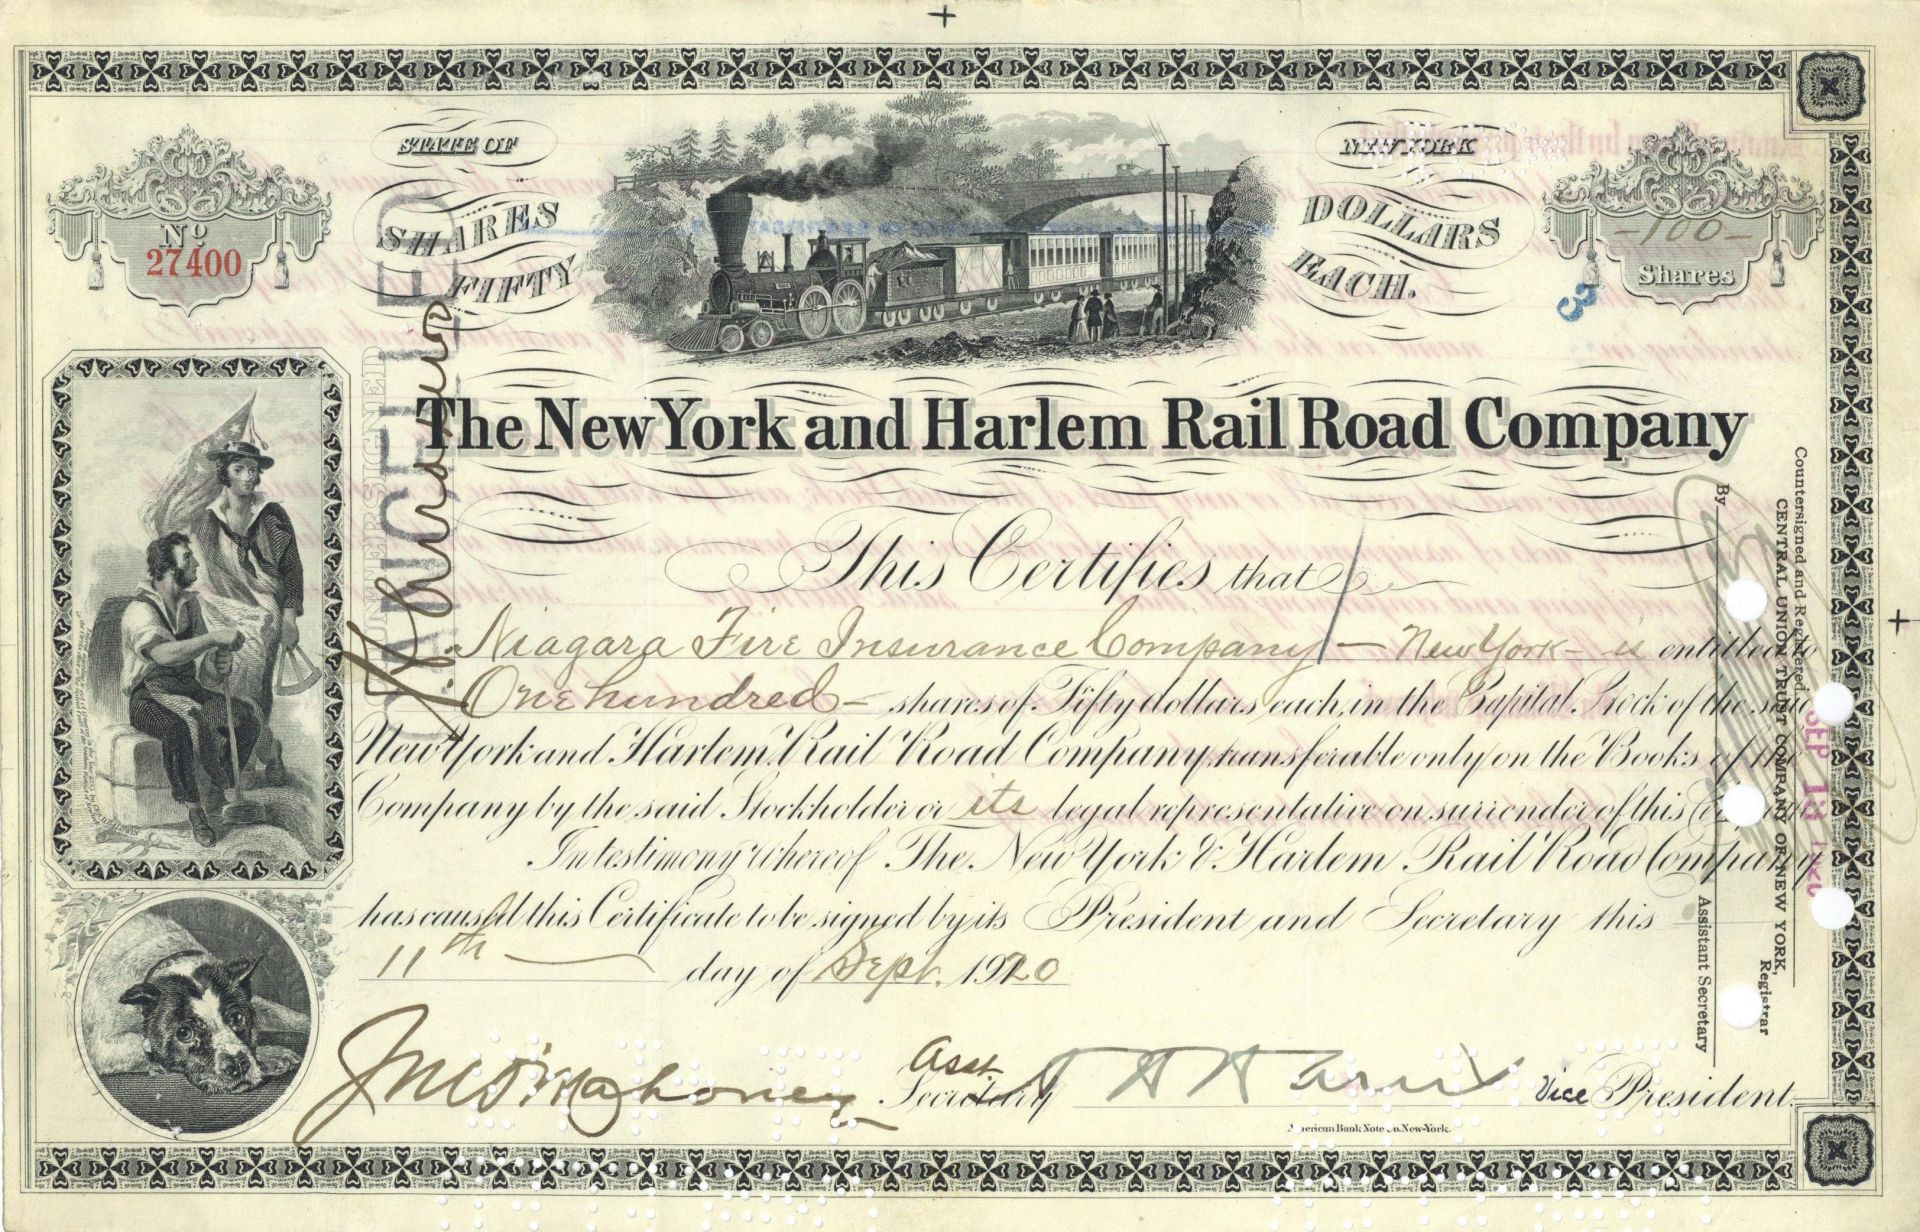 STATE OF
NEW YORK
SHARES
DOLLARS
FIFTY
EACH.
No
27400
-100-
Shares
3
The New York and Harlem Rail Road Company
This Certifies that
Niagara Fire Insurance Company - New York - is entitled to
One hundred - shares of Fifty dollars each, in the Capital Stock of the said
New York and Harlem Rail Road Company, transferable only on the Books of the
Company by the said Stockholder or its legal representative on surrender of this
In testimony whereof The New York & Harlem Rail Road Company
has caused this Certificate to be signed by its President and Secretary this
11th day of Sept. 1920
Asst. Secretary
Vice President.
American Bank Note Co. New-York.
CANCELLED
COUNTERSIGNED
Countersigned and Registered
CENTRAL UNION TRUST COMPANY OF NEW YORK,
Registrar
By
Assistant Secretary
SEP 13